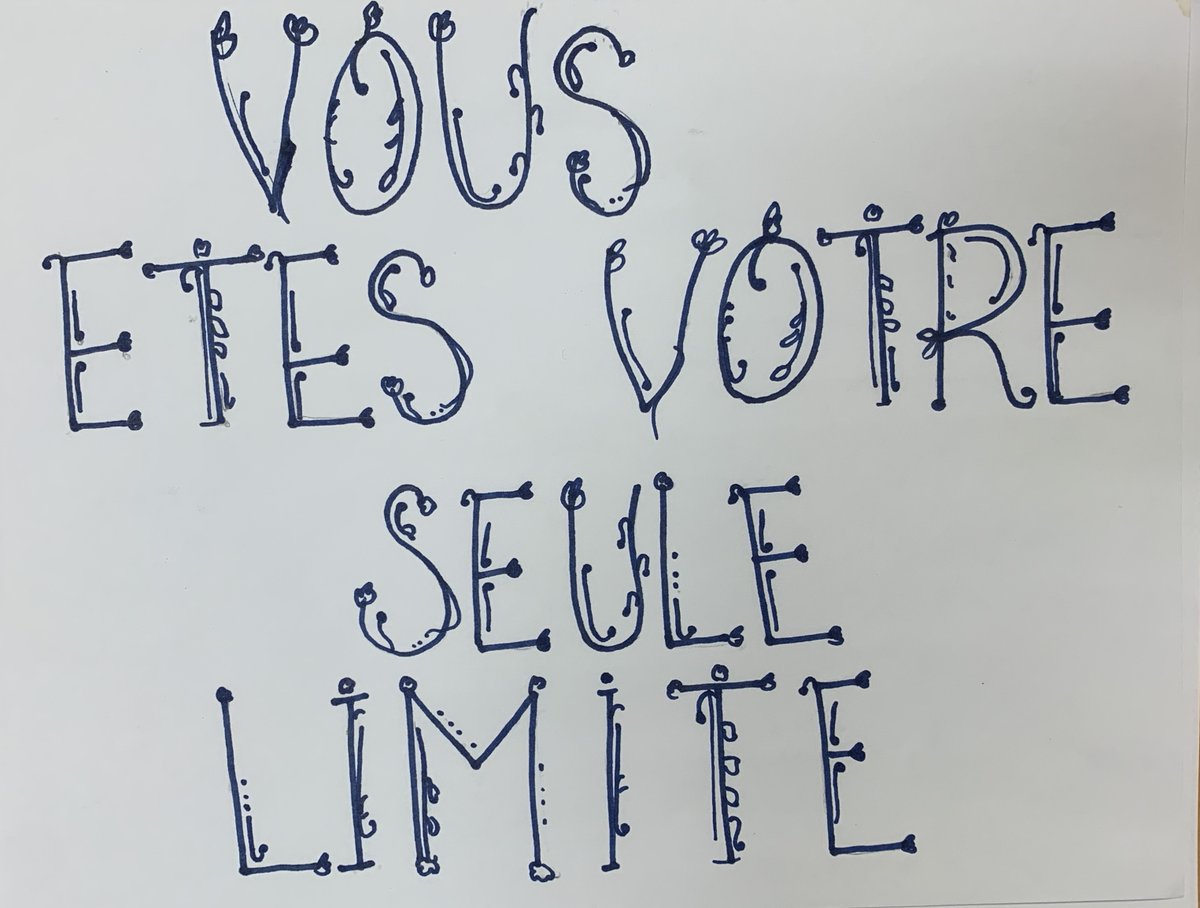 VOUS
ETES VOTRE
SEULE
LIMITE